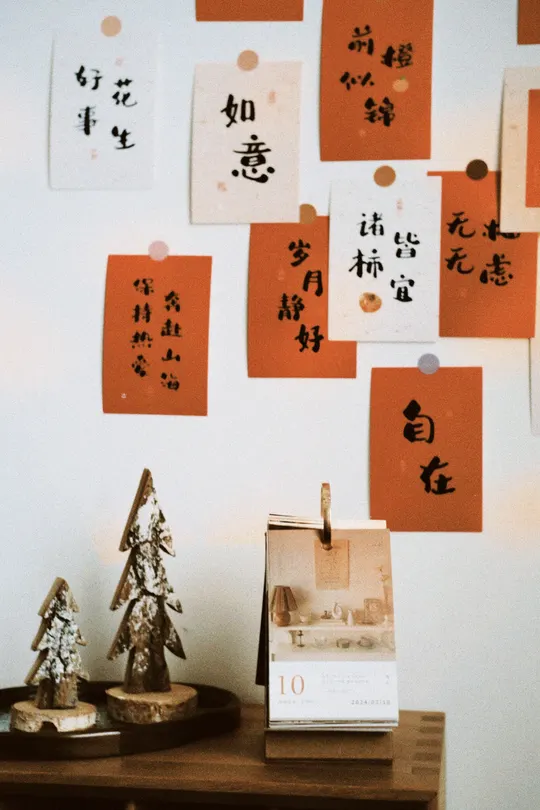 前橙
似锦
好事
花生
如意
诸柿
皆宜
无
无虑
岁月
静好
保持热爱
奔赴山海
自在
10